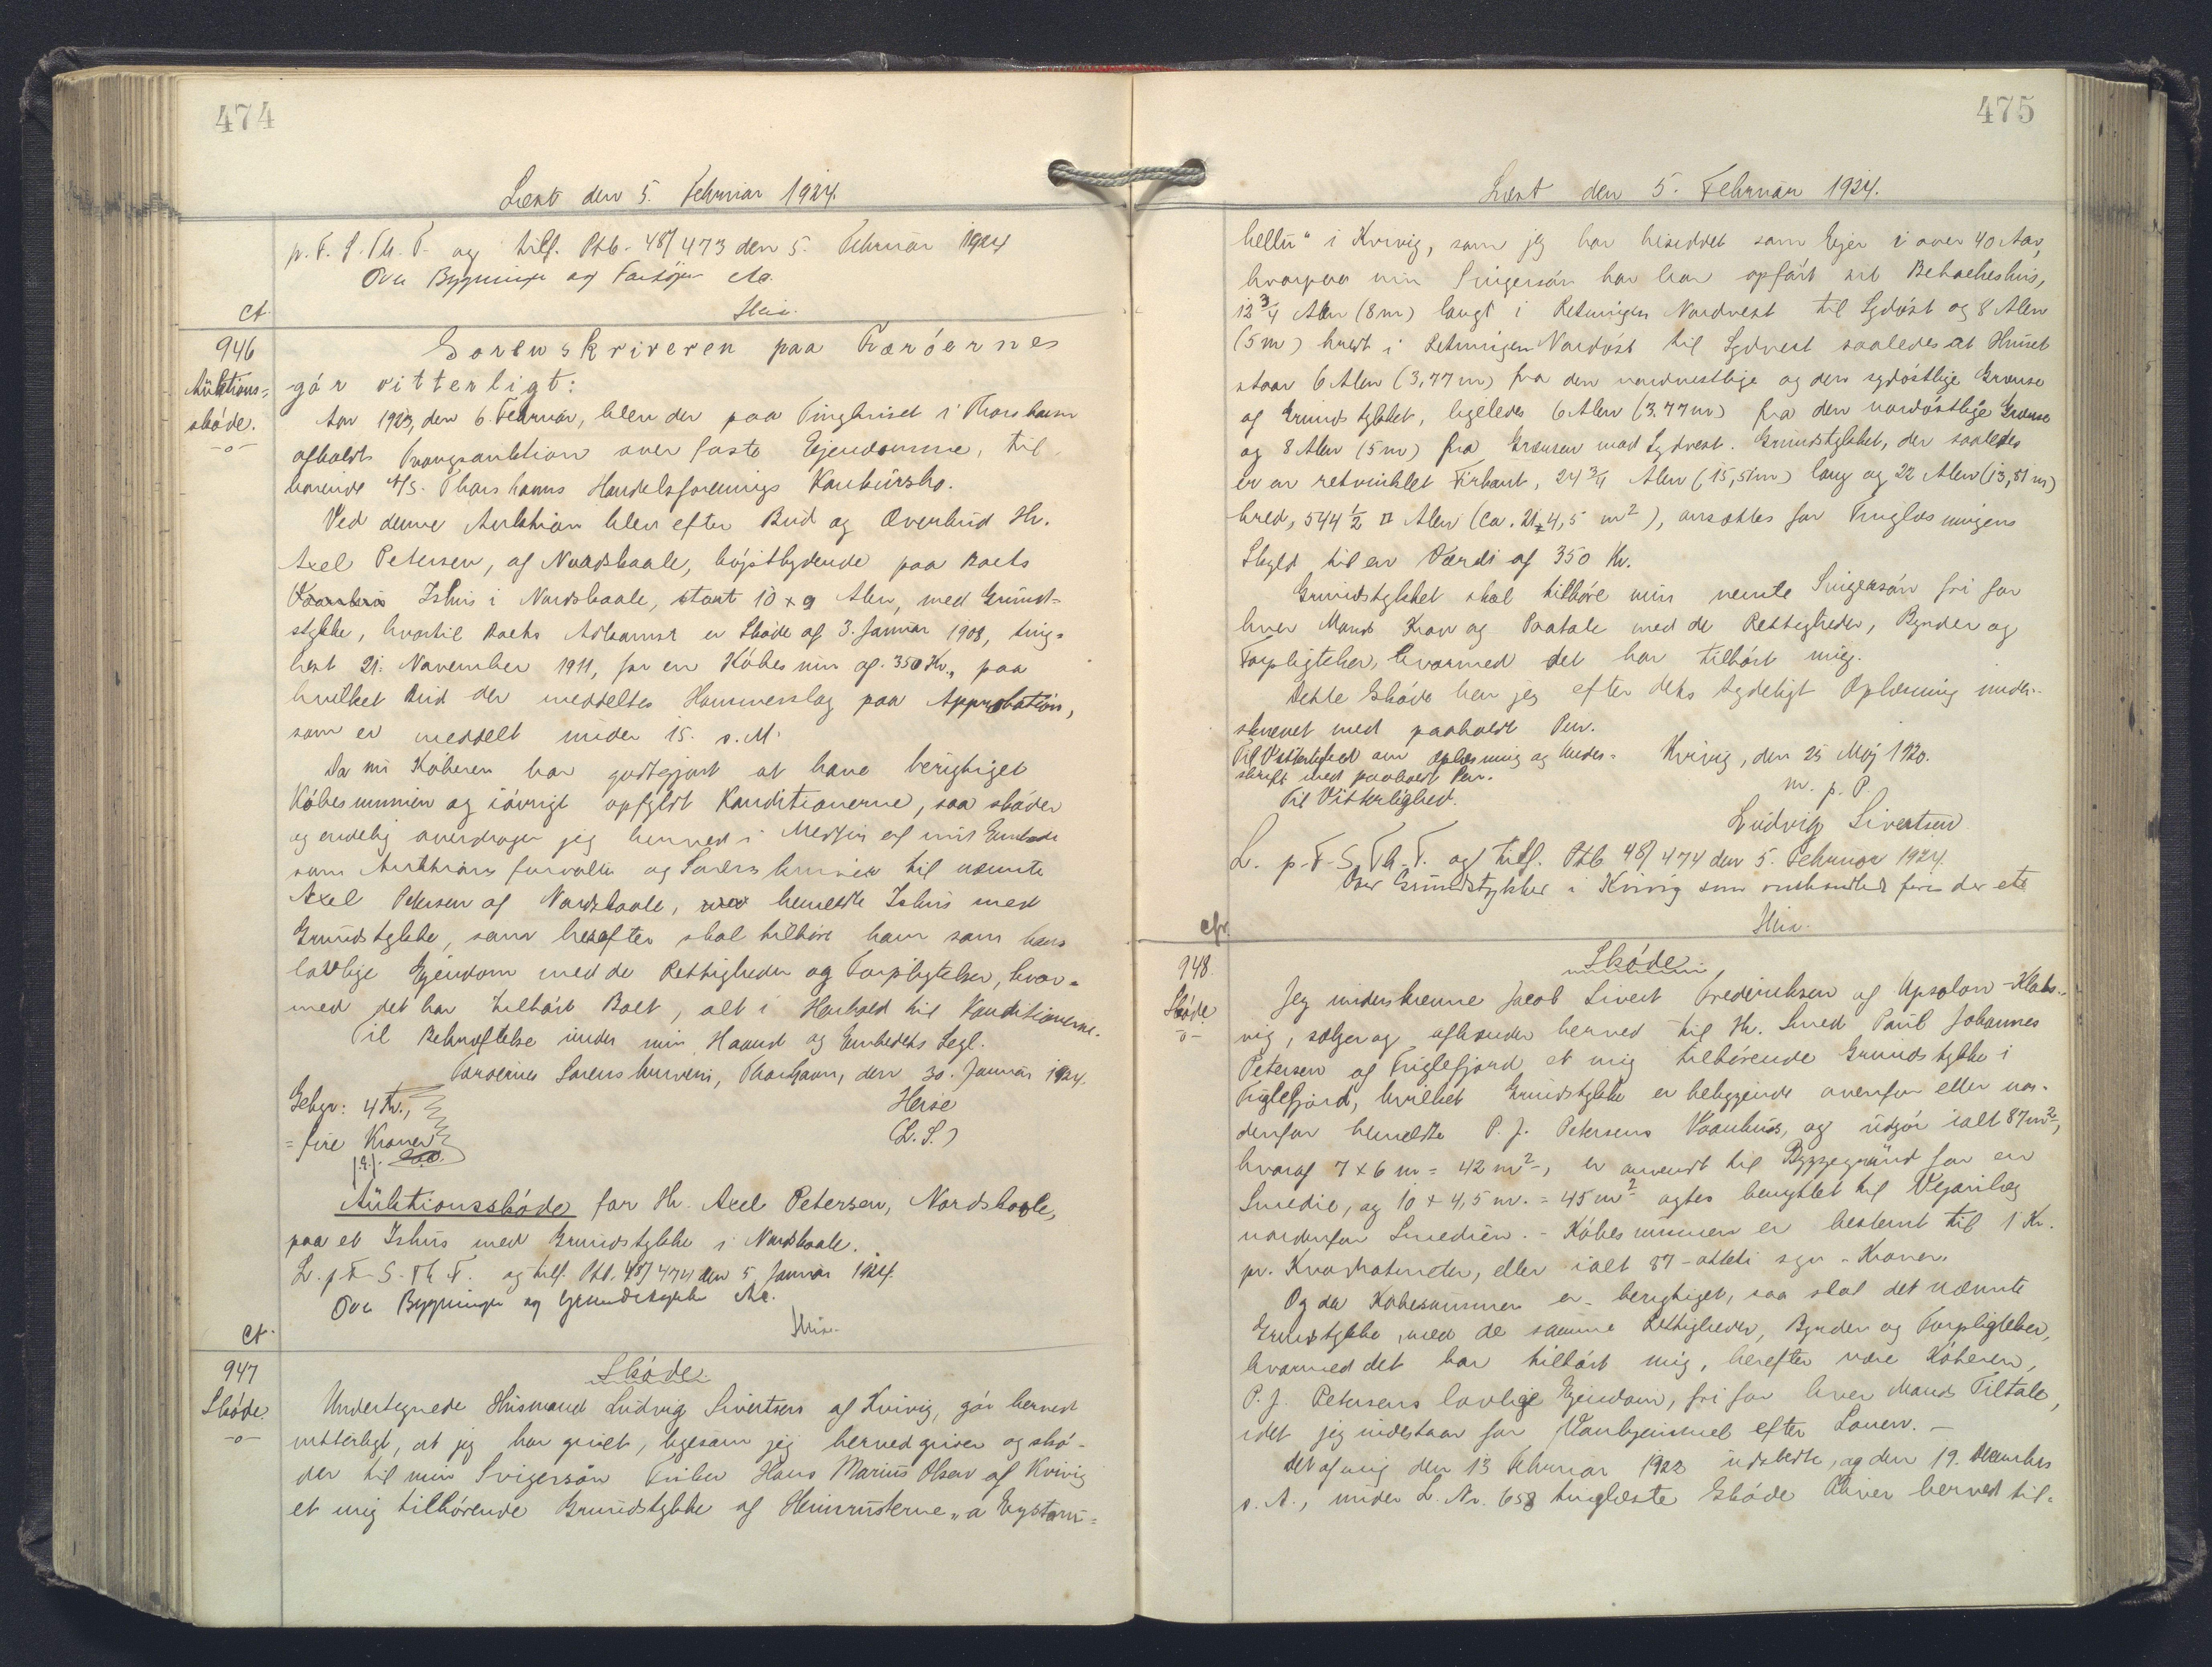 474
Læst den 5. Februar 1924.
p. F. S. Th. T. og tilf. Ptb. 48/473 den 5. Februar 1924
Ove Bygninger og Fartöjer etc.
Heise.
ct.
946
Auktions=
skóde.
-o-
Sorenskriveren paa Færóernes
gór vitterligt:
Aar 1923, den 6. Februar, blev der paa Tinghuset i Thorshavn
afholdt Tvangsauktion over faste Ejendomme, til-
hørende A/S. Thorshavns Handelsforenings Konkursbo.
Ved denne Auktion blev efter Bud og Overbud Hr.
Axel Petersen, af Nordskaale, højstbydende paa Boets
Ishus i Nordskaale, stort 10 x 9 Alen, med Grund=
stykke, hvortil Boets Adkomst er Skóde af 3. Januar 1908, ting=
læst 21. November 1911, for en Kóbesum af 350 Kr., paa
hvilket Bud der meddeltes Hammerslag paa Approbation,
som er meddelt under 15. s. M.
Da nu Kóberen har godtgjort at have berigtiget
Kóbesummen og ióvrigt opfyldt Konditionerne, saa skóder
og endelig overdrager jeg herved i Medfór af mit Embede
som Auktionsforvalter og Sorenskriver til nævnte
Axel Petersen af Nordskaale, bemeldte Ishus med
Grundstykke, som herefter skal tilhóre ham som hans
lovlige Ejendom med de Rettigheder og Forpligtelser, hvor=
med det har tilhórt Boet, alt i Henhold til Konditionerne.
Til Bekræftelse under min Haand og Embedets Segl.
Færóernes Sorenskriveri, Thorshavn, den 30. Januar 1924.
Gebyr: 4 Kr.,
Heise
= fire Kroner
(L. S.)
Auktionsskóde for Hr. Axel Petersen, Nordskaale,
paa et Ishus med Grundstykke i Nordskaale.
L. p. F. S. Th. T. og tilf. Ptb. 48/474 den 5. Januar 1924.
Ove Bygninger og Grundstykke etc.
Heise.
ct.
947
Skóde.
-o-
Skóde.
Undertegnede Husmand Ludvig Sivertsen af Kvivig, gór herved
vitterligt, at jeg har givet, ligesom jeg herved giver og skó-
der til min Svigersón Fisker Hans Marius Olsen af Kvivig
et mig tilhórende Grundstykke af Heimrusterne „a Eystaru=
475
Læst den 5. Februar 1924.
hellu" i Kvivig, som jeg har besiddet som Ejer i over 40 Aar,
hvorpaa min Svigersón har opfórt sit Beboelseshus,
12 3/4 Alen (8 m) langt i Retningen Nordvest til Sydóst og 8 Alen
(5 m) bredt i Retningen Nordóst til Sydvest saaledes at Huset
staar 6 Alen (3,77 m) fra den nordvestlige og den sydóstlige Grænse
af Grundstykket, ligeledes 6 Alen (3,77 m) fra den nordóstlige Grænse
og 8 Alen (5 m) fra Grænsen mod Sydvest. Grundstykket, der saaledes
er en retvinklet Firkant, 24 3/4 Alen (15,51 m) lang og 22 Alen (13,81 m)
bred, 544 1/2 □ Alen (ca. 214,5 m²), ansættes for Tinglæsningens
Skyld til en Værdi af 350 Kr.
Grundstykket skal tilhóre min nævnte Svigersón fri for
hver Mands Krav og Paatale med de Rettigheder, Byrder og
Forpligtelser, hvormed det har tilhórt mig.
Dette Skóde har jeg efter dets tydeligt Oplæsning under-
skrevet med paaholdt Pen.
Til Vitterlighed om Oplæsning og Under=
Kvivig, den 25 Maj 1920.
skrift med paaholdt Pen.
m. p. P.
Til Vitterlighed.
Ludvig Sivertsen
L. p. F. S. Th. T. og tilf. Ptb 48/474 den 5. Februar 1924.
Over Grundstykket i Kvivig som
Heise.
cfr.
948.
Skóde.
-o-
Skóde
Jeg underskrevne Jacob Sivert Frederiksen af Upsalon - Klaks-
vig, sælger og afhænder herved til Hr. Smed Paul Johannes
Petersen af Fuglefjord et mig tilhórende Grundstykke i
Fuglefjord, hvilket Grundstykke er beliggende ovenfor eller nor-
denfor bemeldte P. J. Petersens Vaanhus, og udgór ialt 87 m²,
hvoraf 7 x 6 m = 42 m², er anvendt til Byggegrund for en
Smedie, og 10 x 4,5 m. = 45 m² agtes benyttet til Vejanlæg
nordenfor Smedien. - Kóbesummen er bestemt til 1 Kr.
pr. Kvadratmeter, eller ialt 87 - otteti syv - Kroner.
Og da Kóbesummen er berigtiget, saa skal det nævnte
Grundstykke, med de samme Rettigheder, Byrder og Forpligtelser,
hvormed det har tilhórt mig, herefter være Kóberen,
P. J. Petersens lovlige Ejendom, fri for hver Mands Tiltale,
idet jeg indestaar for Vanhjemmel efter Loven. -
Det af mig den 13 Februar 1922 udstedte, og den 19. December
s. A., under L. Nr. 658 tinglæste Skóde bliver herved til-